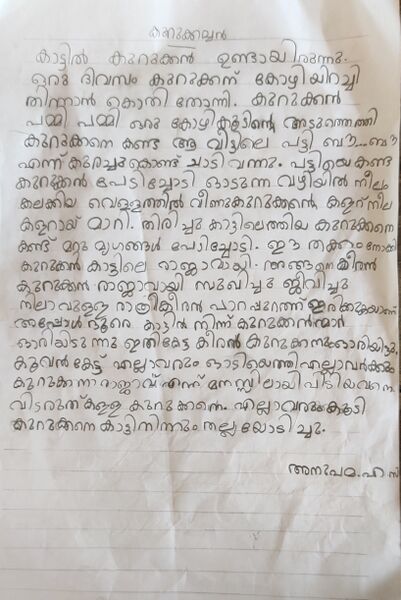 കുറുക്കച്ചൻ
കാട്ടിൽ കുറുക്കൻ ഉണ്ടായിരുന്നു.
ഒരു ദിവസം കുറുക്കന് കോഴിയിറച്ചി
തിന്നാൻ കൊതി തോന്നി. കുറുക്കൻ
പമ്മി പമ്മി ഒരു കോഴികൂടിന്റെ അടുത്തെത്തി
കുറുക്കനെ കണ്ട ആ വീട്ടിലെ പട്ടി ബൗ...ബൗ
എന്ന് കുരച്ചുകൊണ്ട് ചാടി വന്നു. പട്ടിയെകണ്ട
കുറുക്കൻ പേടിച്ചോടി ഓടുന്ന വഴിയിൽ നീലം
കലക്കിയ വെള്ളത്തിൽ വീണുകുറുക്കന്റെ കളറ് നീല
കളറായ് മാറി. തിരിച്ചു കാട്ടിലെത്തിയ കുറുക്കനെ
കണ്ട് മറ്റു മൃഗങ്ങൾ പേടിച്ചോടി. ഈ തക്കം നോക്കി
കുറുക്കൻ കാട്ടിലെ രാജാവായി. അങ്ങനെ വീരൻ
കുറുക്കൻ രാജാവായി സുഖിച്ചു ജീവിച്ചു
നിലാവുള്ള രാത്രി വീരൻ പാറപ്പുറത്ത് ഇരിക്കുകയാണ്
അപ്പോൾ ദൂരെ കാട്ടിൽ നിന്ന് കുറുക്കൻമ്മാർ
ഓരിയിടുന്നു ഇതുകേട്ട വീരൻ കുറുക്കനുംഓരിയിട്ടു.
കൂവൻകേട്ട് എല്ലാവരും ഓടിയെത്തി എല്ലാവർക്കും
കുറുക്കനാ രാജാവ് എന്ന് മനസ്സിലായി പിടിയവനെ
വിടരുത് കള്ള കുറുക്കനെ. എല്ലാവരുംകൂടി
കുറുക്കനെ കാട്ടിനിന്നും തല്ലയോടിച്ചു.
അനുപമ.ഹ.സ